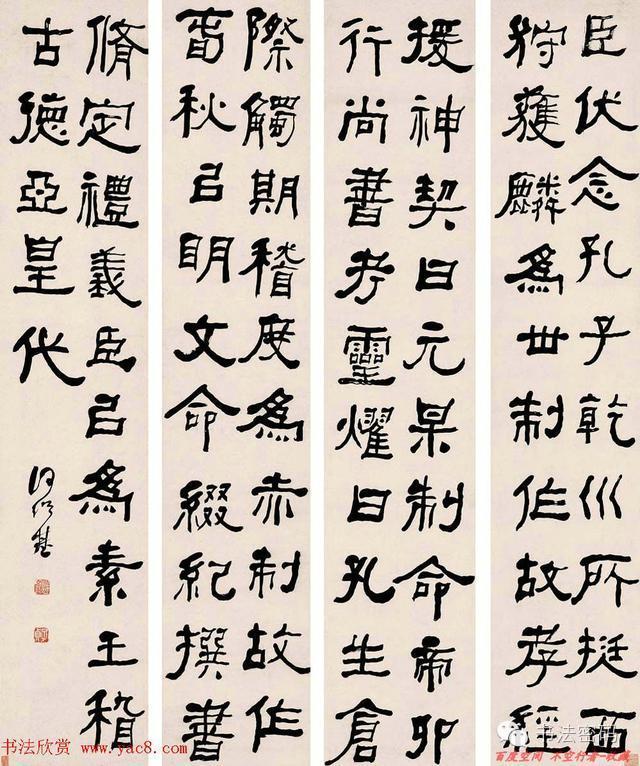 臣伏念孔子乾川所挺西
狩獲麟爲世制作故孝經
援神契曰元某制命帝卯
行尚書考靈燿曰孔生倉
際觸期稽度爲赤制故作
春秋㠯明文命綴紀撰書
脩定禮義臣㠯爲素王稽
古德亞皇代
何紹基
书法欣赏 www.yac8.com
书法密码
百度空间 不空行者-收藏